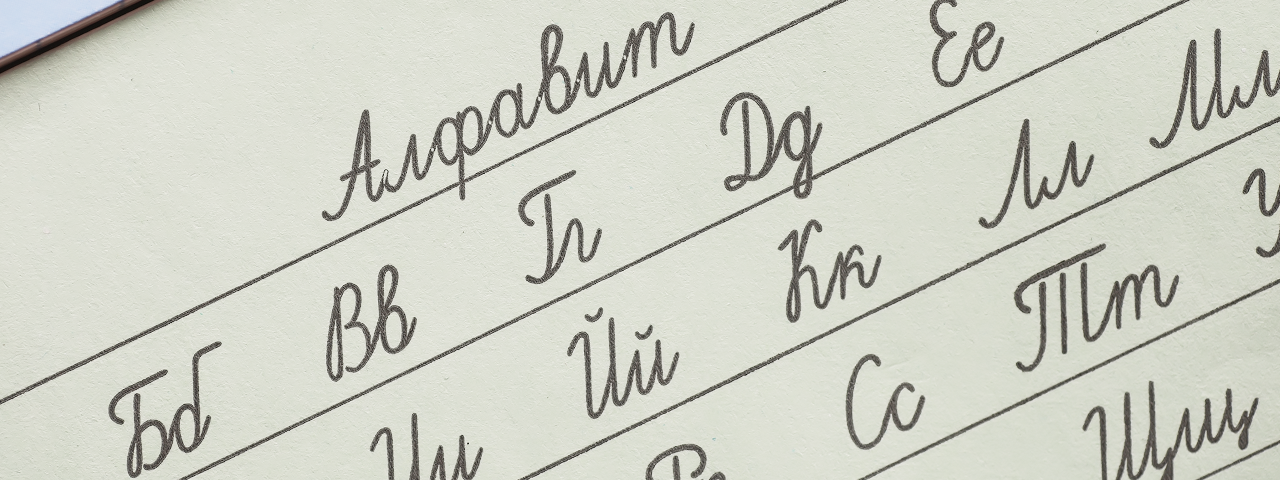 Алфавит
Бб Вв Гг Дд Ее
Ии Йй Кк Лл Мм
Сс Тт
Щщ